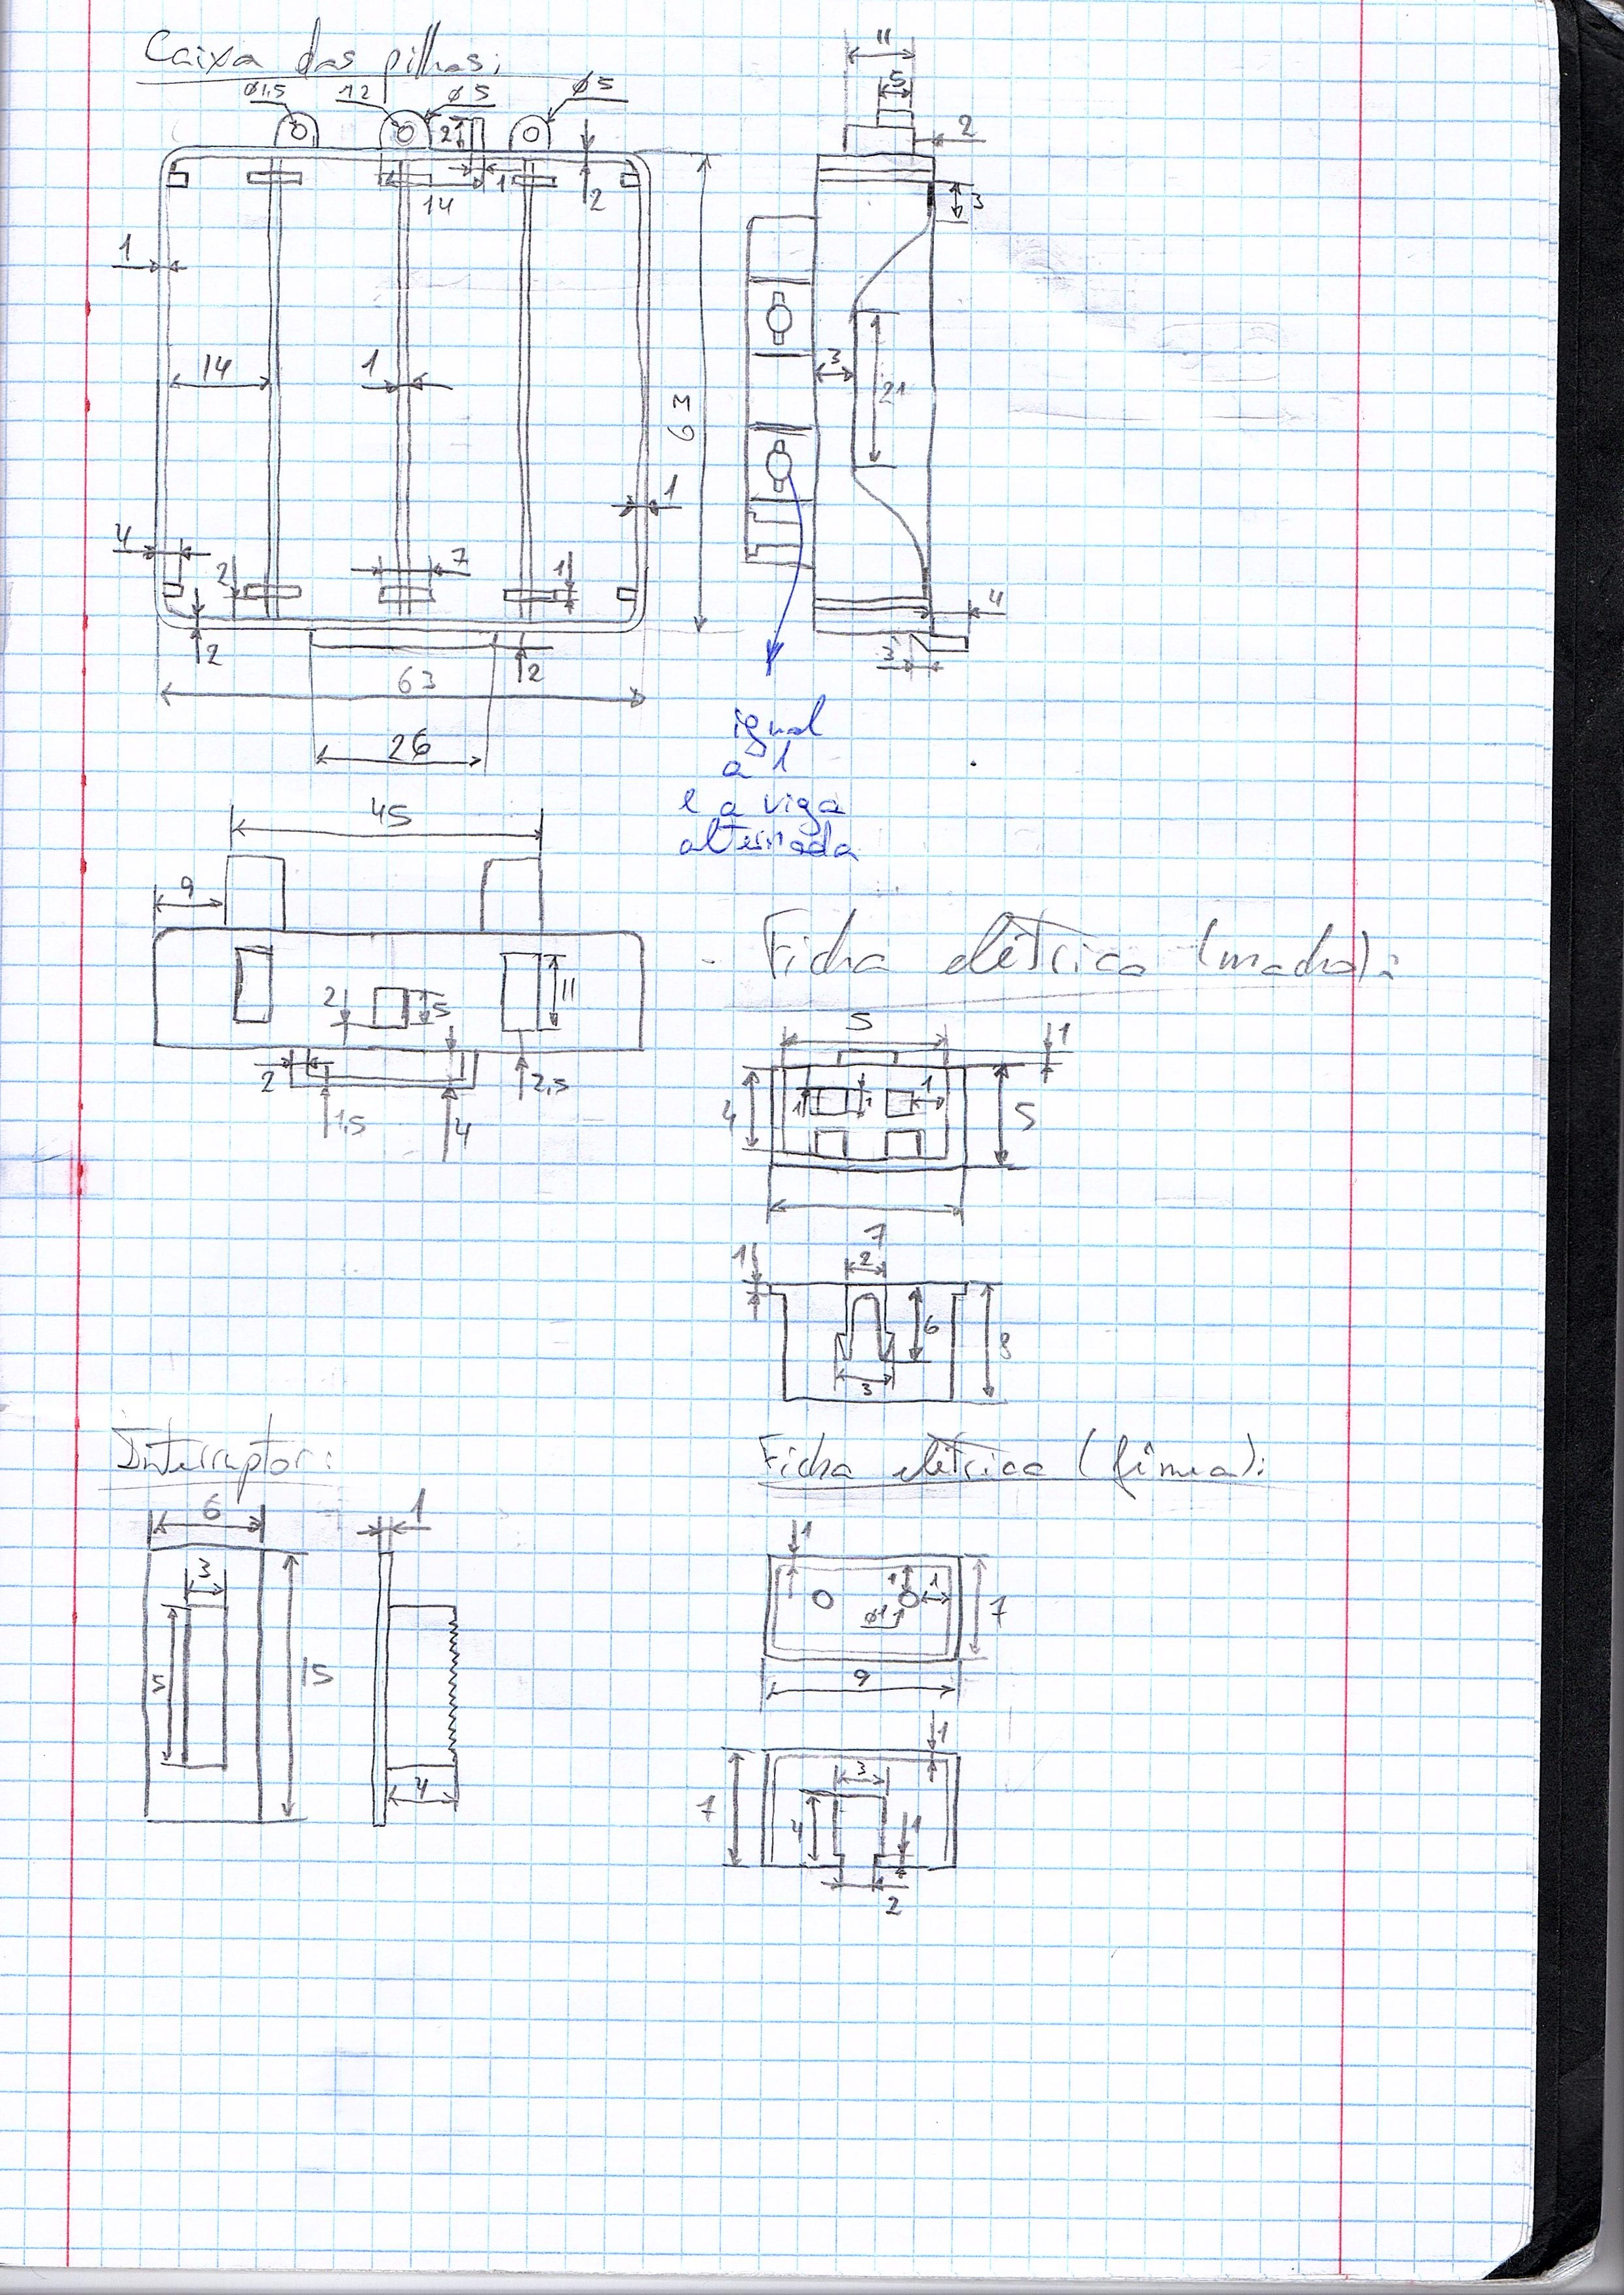 Caixa das pilhas:
Ø1,5 12 Ø5 Ø5
2 1 2
14
1
14 1
63
1
4 2 7 1
2 2
63
26
11
5
2
3
3 21
4
3
igual
a 1
e a viga
alternada
45
9
2 5 11
2 1,5 4 2,5
Ficha elétrica (macho):
5 1
4 1 1 1 5
7
1 2
6 8
3
Interruptor:
6 1
3
5 15
4
Ficha elétrica (fêmea):
1
1 1 7
Ø1
9
1
3
7 4 1
2